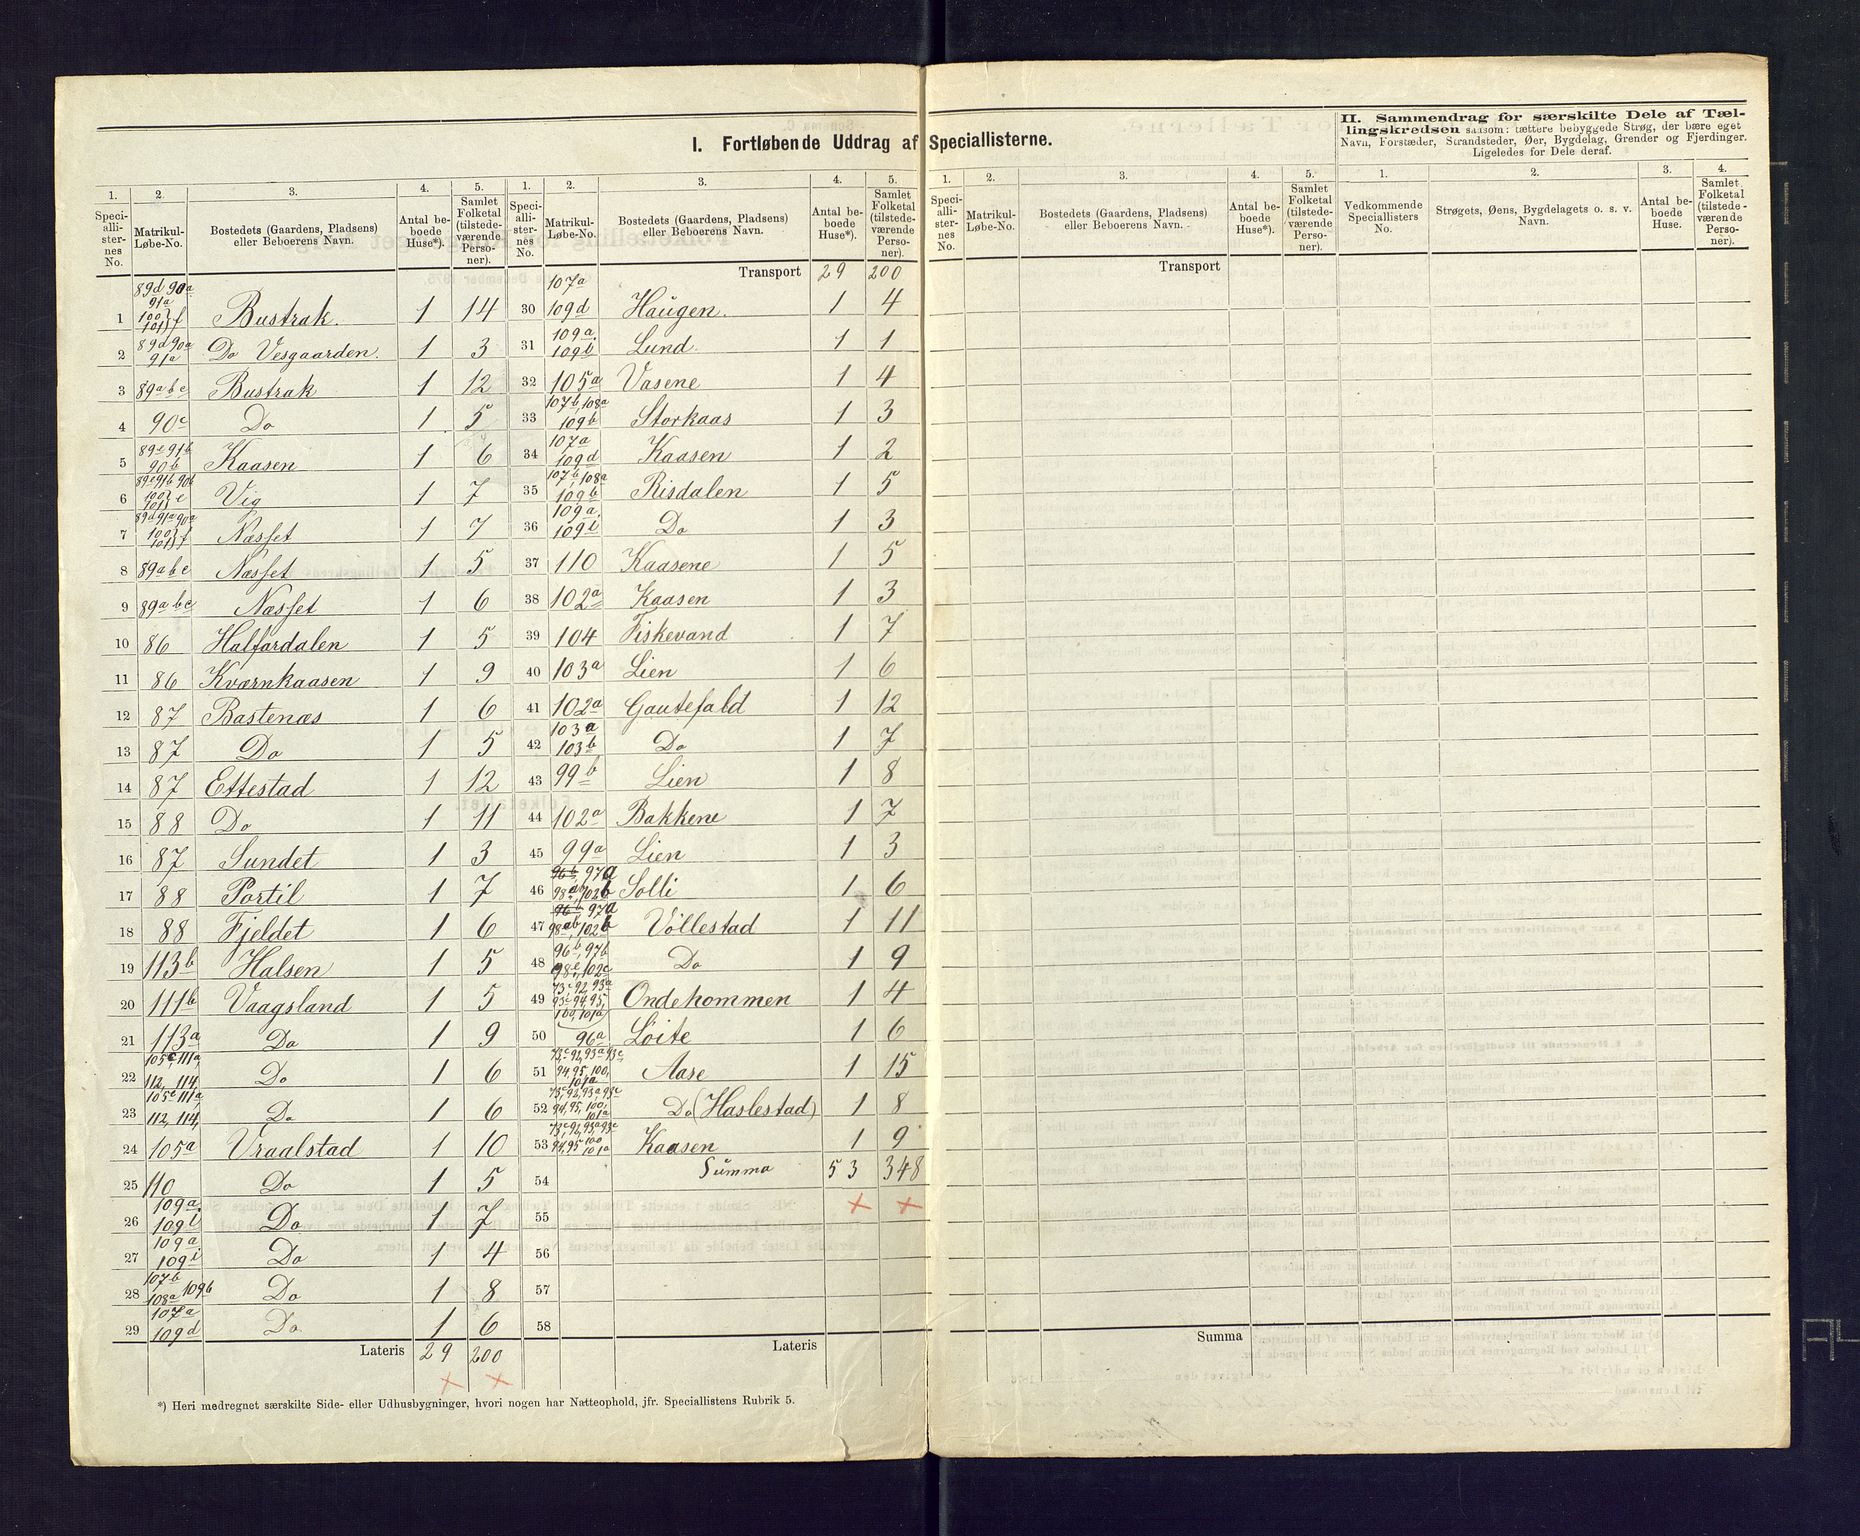 I. Fortløbende Uddrag af Speciallisterne.
II. Sammendrag for særskilte Dele af Tæl-
lingskredsen saasom: tættere bebyggede Strøg, der bære eget
Navn, Forstæder, Strandsteder, Øer, Bygdelag, Grender og Fjerdinger.
Ligeledes for Dele deraf.
1. 2. 3. 4. 5. 1. 2. 3. 4. 5.
Speciallisternes No. Matrikul-Løbe-No. Bostedets (Gaardens, Pladsens) eller Beboerens Navn. Antal beboede Huse*). Samlet Folketal (tilstedeværende Personer).
Speciallisternes No. Matrikul-Løbe-No. Bostedets (Gaardens, Pladsens) eller Beboerens Navn. Antal beboede Huse*). Samlet Folketal (tilstedeværende Personer).
1 89d 90a 91a 100 101 f Bustrak. 1 14
2 89d 90a 91a Do Vesgaarden. 1 3
3 89a b c Bustrak 1 12
4 90c Do 1 5
5 89e 91b 90b Kaasen 1 6
6 89e 91b 90b 100 101 e Vig 1 7
7 89d 91a 90a 100 101 f Næsset 1 7
8 89a b c Næsset 1 5
9 89a b c Næsset 1 6
10 86 Halfardalen 1 5
11 86 Kværnkaasen 1 9
12 87 Bastenæs 1 6
13 87 Do 1 5
14 87 Ettestad 1 12
15 88 Do 1 11
16 87 Sundet 1 3
17 88 Portil 1 7
18 88 Fjeldet 1 6
19 113b Halsen 1 5
20 111b Vaagsland 1 5
21 113a Do 1 9
22 105c, 111a, 112, 114, Do 1 6
23 105c 111a, 112, 114, Do 1 6
24 105a Vraalstad 1 10
25 110 Do 1 5
26 109a, 109i Do 1 7
27 109a 109i Do 1 4
28 107b 108a 109b Do 1 8
29 107a 109d Do 1 6
Lateris 29 200
Transport 29 200
30 107a 109d Haugen. 1 4
31 109a, 109i Lund. 1 1
32 105a Vasene 1 4
33 107b, 108a 109b Storkaas 1 3
34 107a 109d Kaasen 1 2
35 107b, 108a 109b Risdalen 1 5
36 109a, 109i Do 1 3
37 110 Kaasene 1 5
38 102a Kaasen 1 3
39 104 Fiskevand 1 7
40 103a Lien 1 6
41 102a Gautefald 1 12
42 103a 103b Do 1 7
43 99b Lien 1 8
44 102a Bakkene 1 7
45 99a Lien 1 3
46 96b, 97a 98ab, 102b Solli 1 6
47 96b 97a 98ab, 102b Völlestad 1 11
48 96b, 97b 98c, 102c Do 1 9
49 73c, 92, 93a 93c, 94, 95, 100, 101a Ondehommen 1 4
50 96a Löite 1 6
51 73c, 92, 93a 93c 94, 95, 100, 101a Aase 1 15
52 73c, 92, 93a 93c 94, 95, 100, 101a Do (Haslestad) 1 8
53 73c, 92, 93a 93c 94, 95 100 101a Kaasen 1 9
54 Summa 53 348
55
56
57
58
Lateris
*) Heri medregnet særskilte Side- eller Udhusbygninger, hvori nogen har Natteophold, jfr. Speciallistens Rubrik 5.
1. 2. 3. 4. 5. 1. 2. 3. 4.
Speciallisternes No. Matrikul-Løbe-No. Bostedets (Gaardens, Pladsens) eller Beboerens Navn. Antal beboede Huse*). Samlet Folketal (tilstedeværende Personer).
Vedkommende Speciallisters No. Strøgets, Øens, Bygdelagets o. s. v. Navn. Antal beboede Huse. Samlet Folketal (tilstedeværende Personer).
Transport
Summa